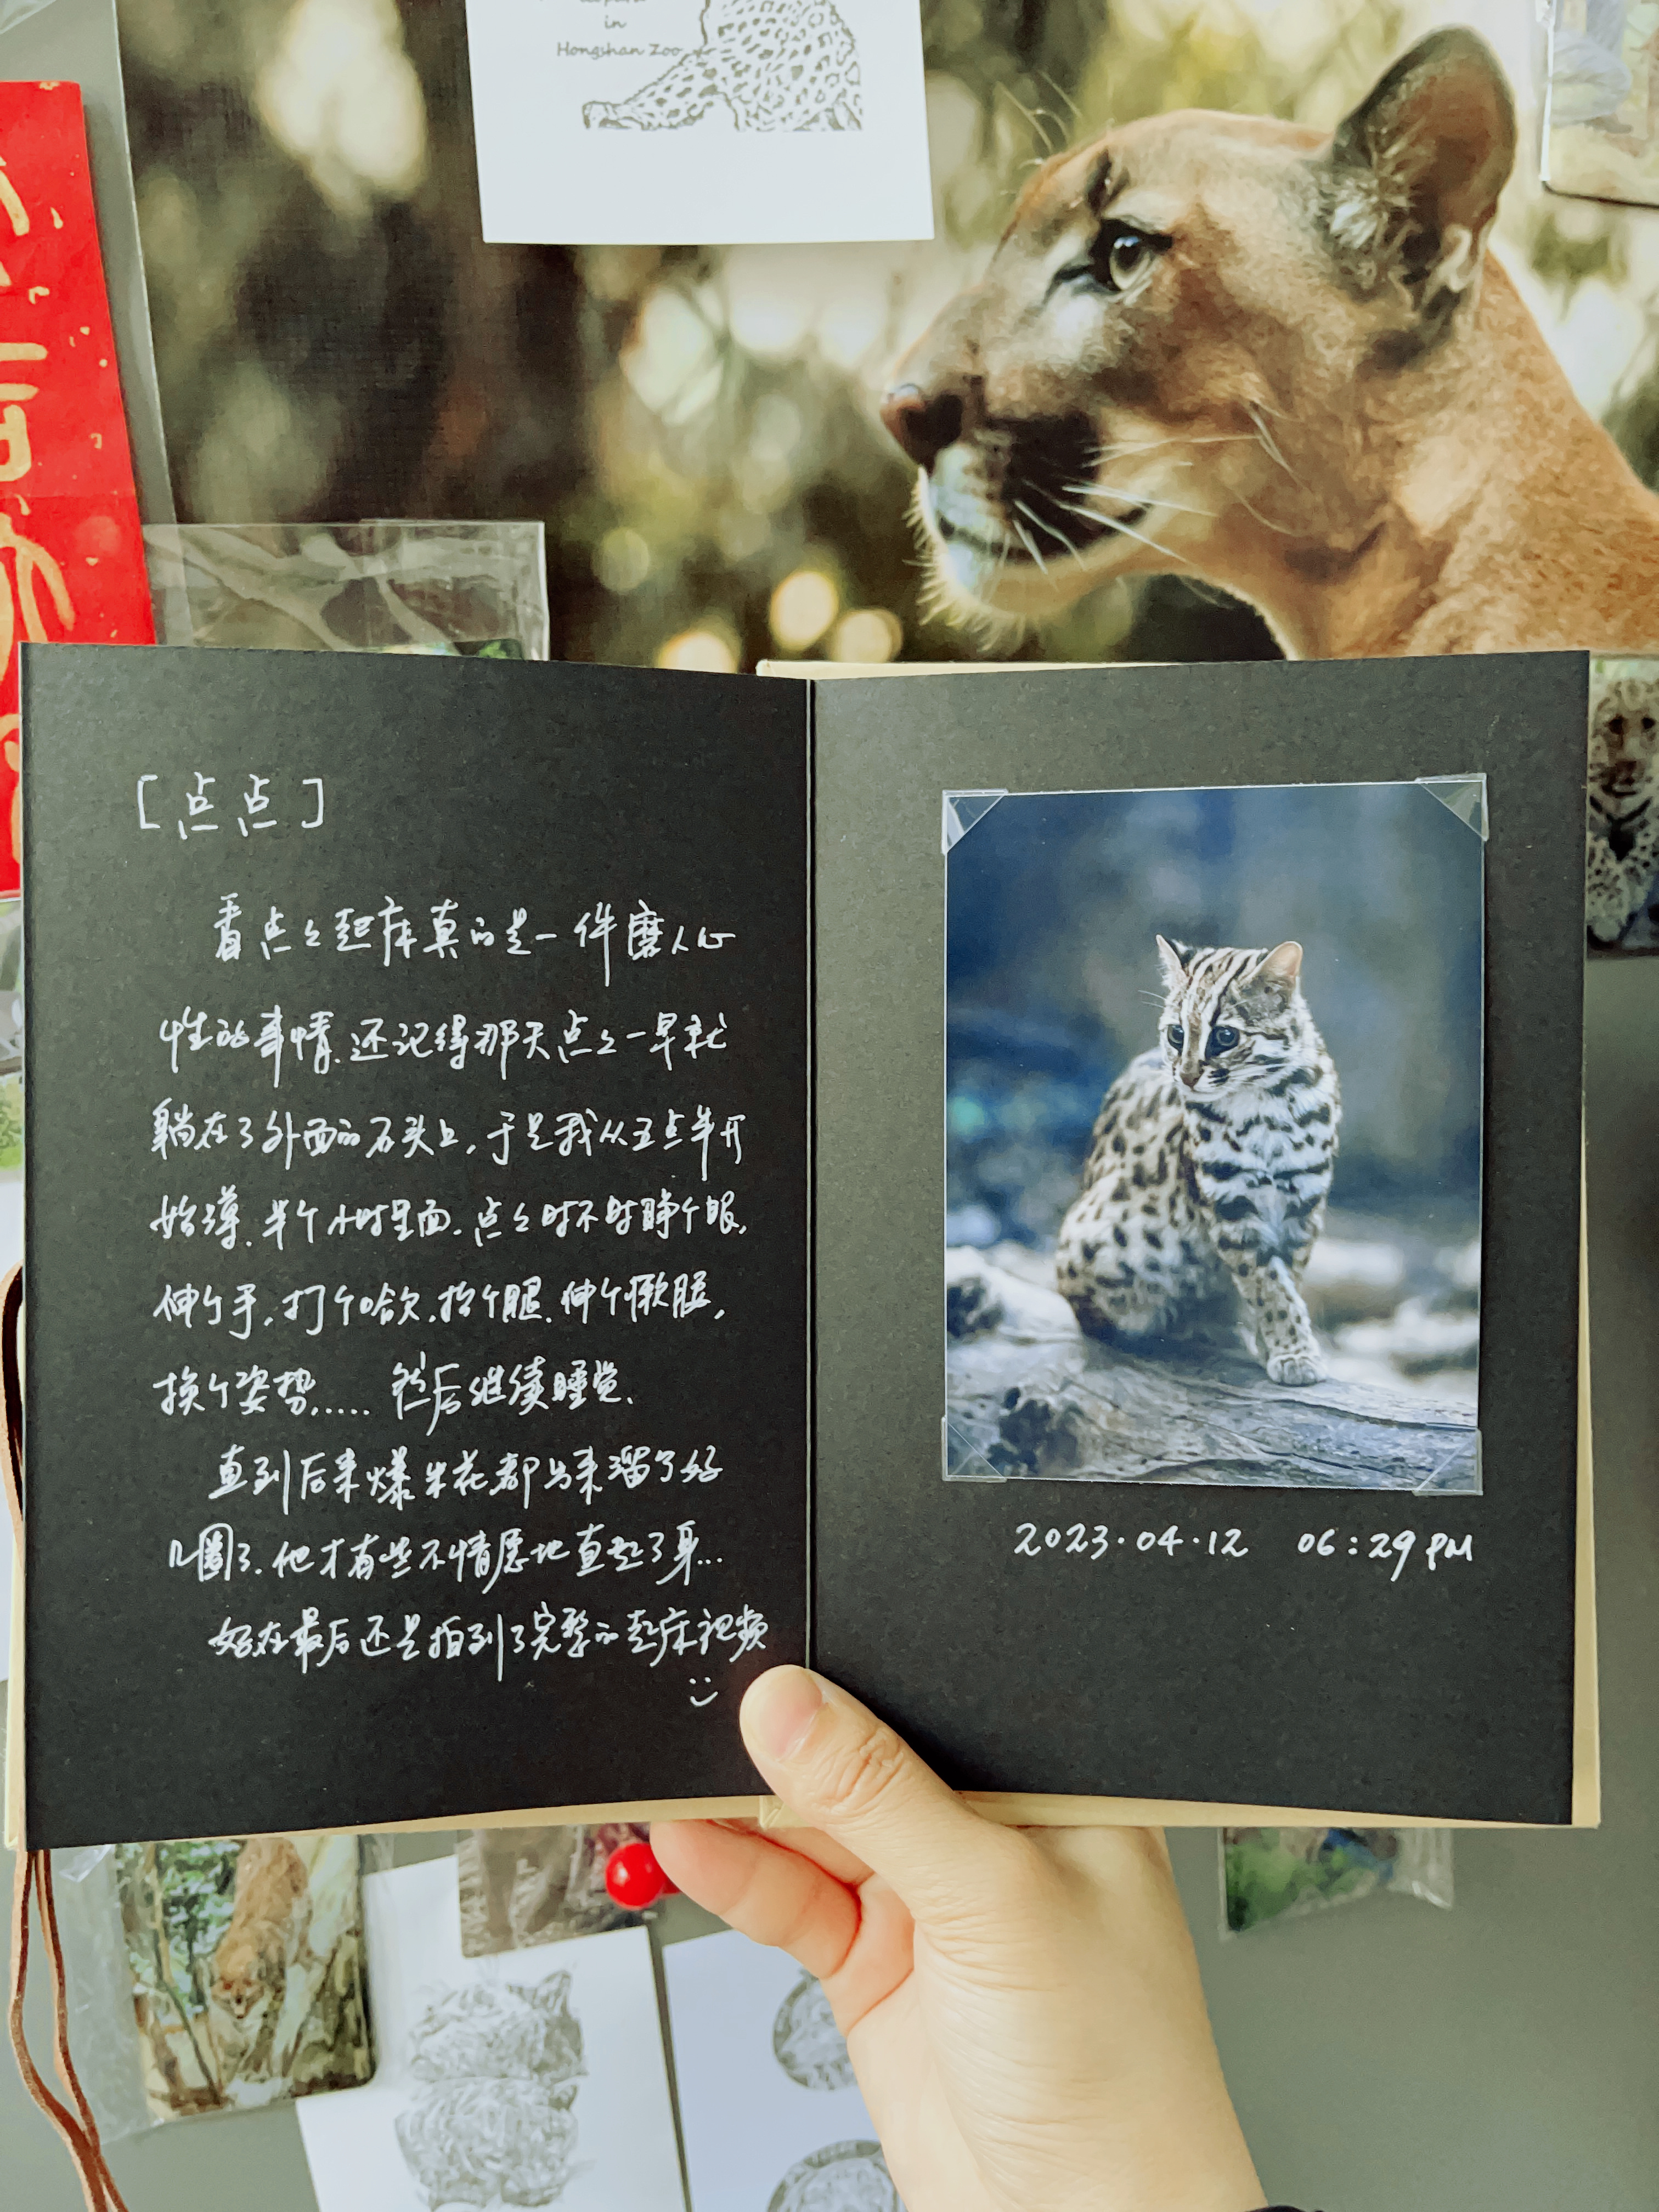 in
Hongshan Zoo
[点点]
看点点起床真的是一件磨人心
性的事情.还记得那天点点一早就
躺在了外面的石头上,于是我从五点半开
始蹲.半个小时里面.点点时不时睁个眼,
伸个手,打个哈欠.抬个腿.伸个懒腰,
换个姿势...... 然后继续睡觉.
直到后来爆米花都出来溜了好
几圈了.他才有些不情愿地直起了身...
好在最后还是拍到了完整的起床视频
2023.04.12 06:29 PM